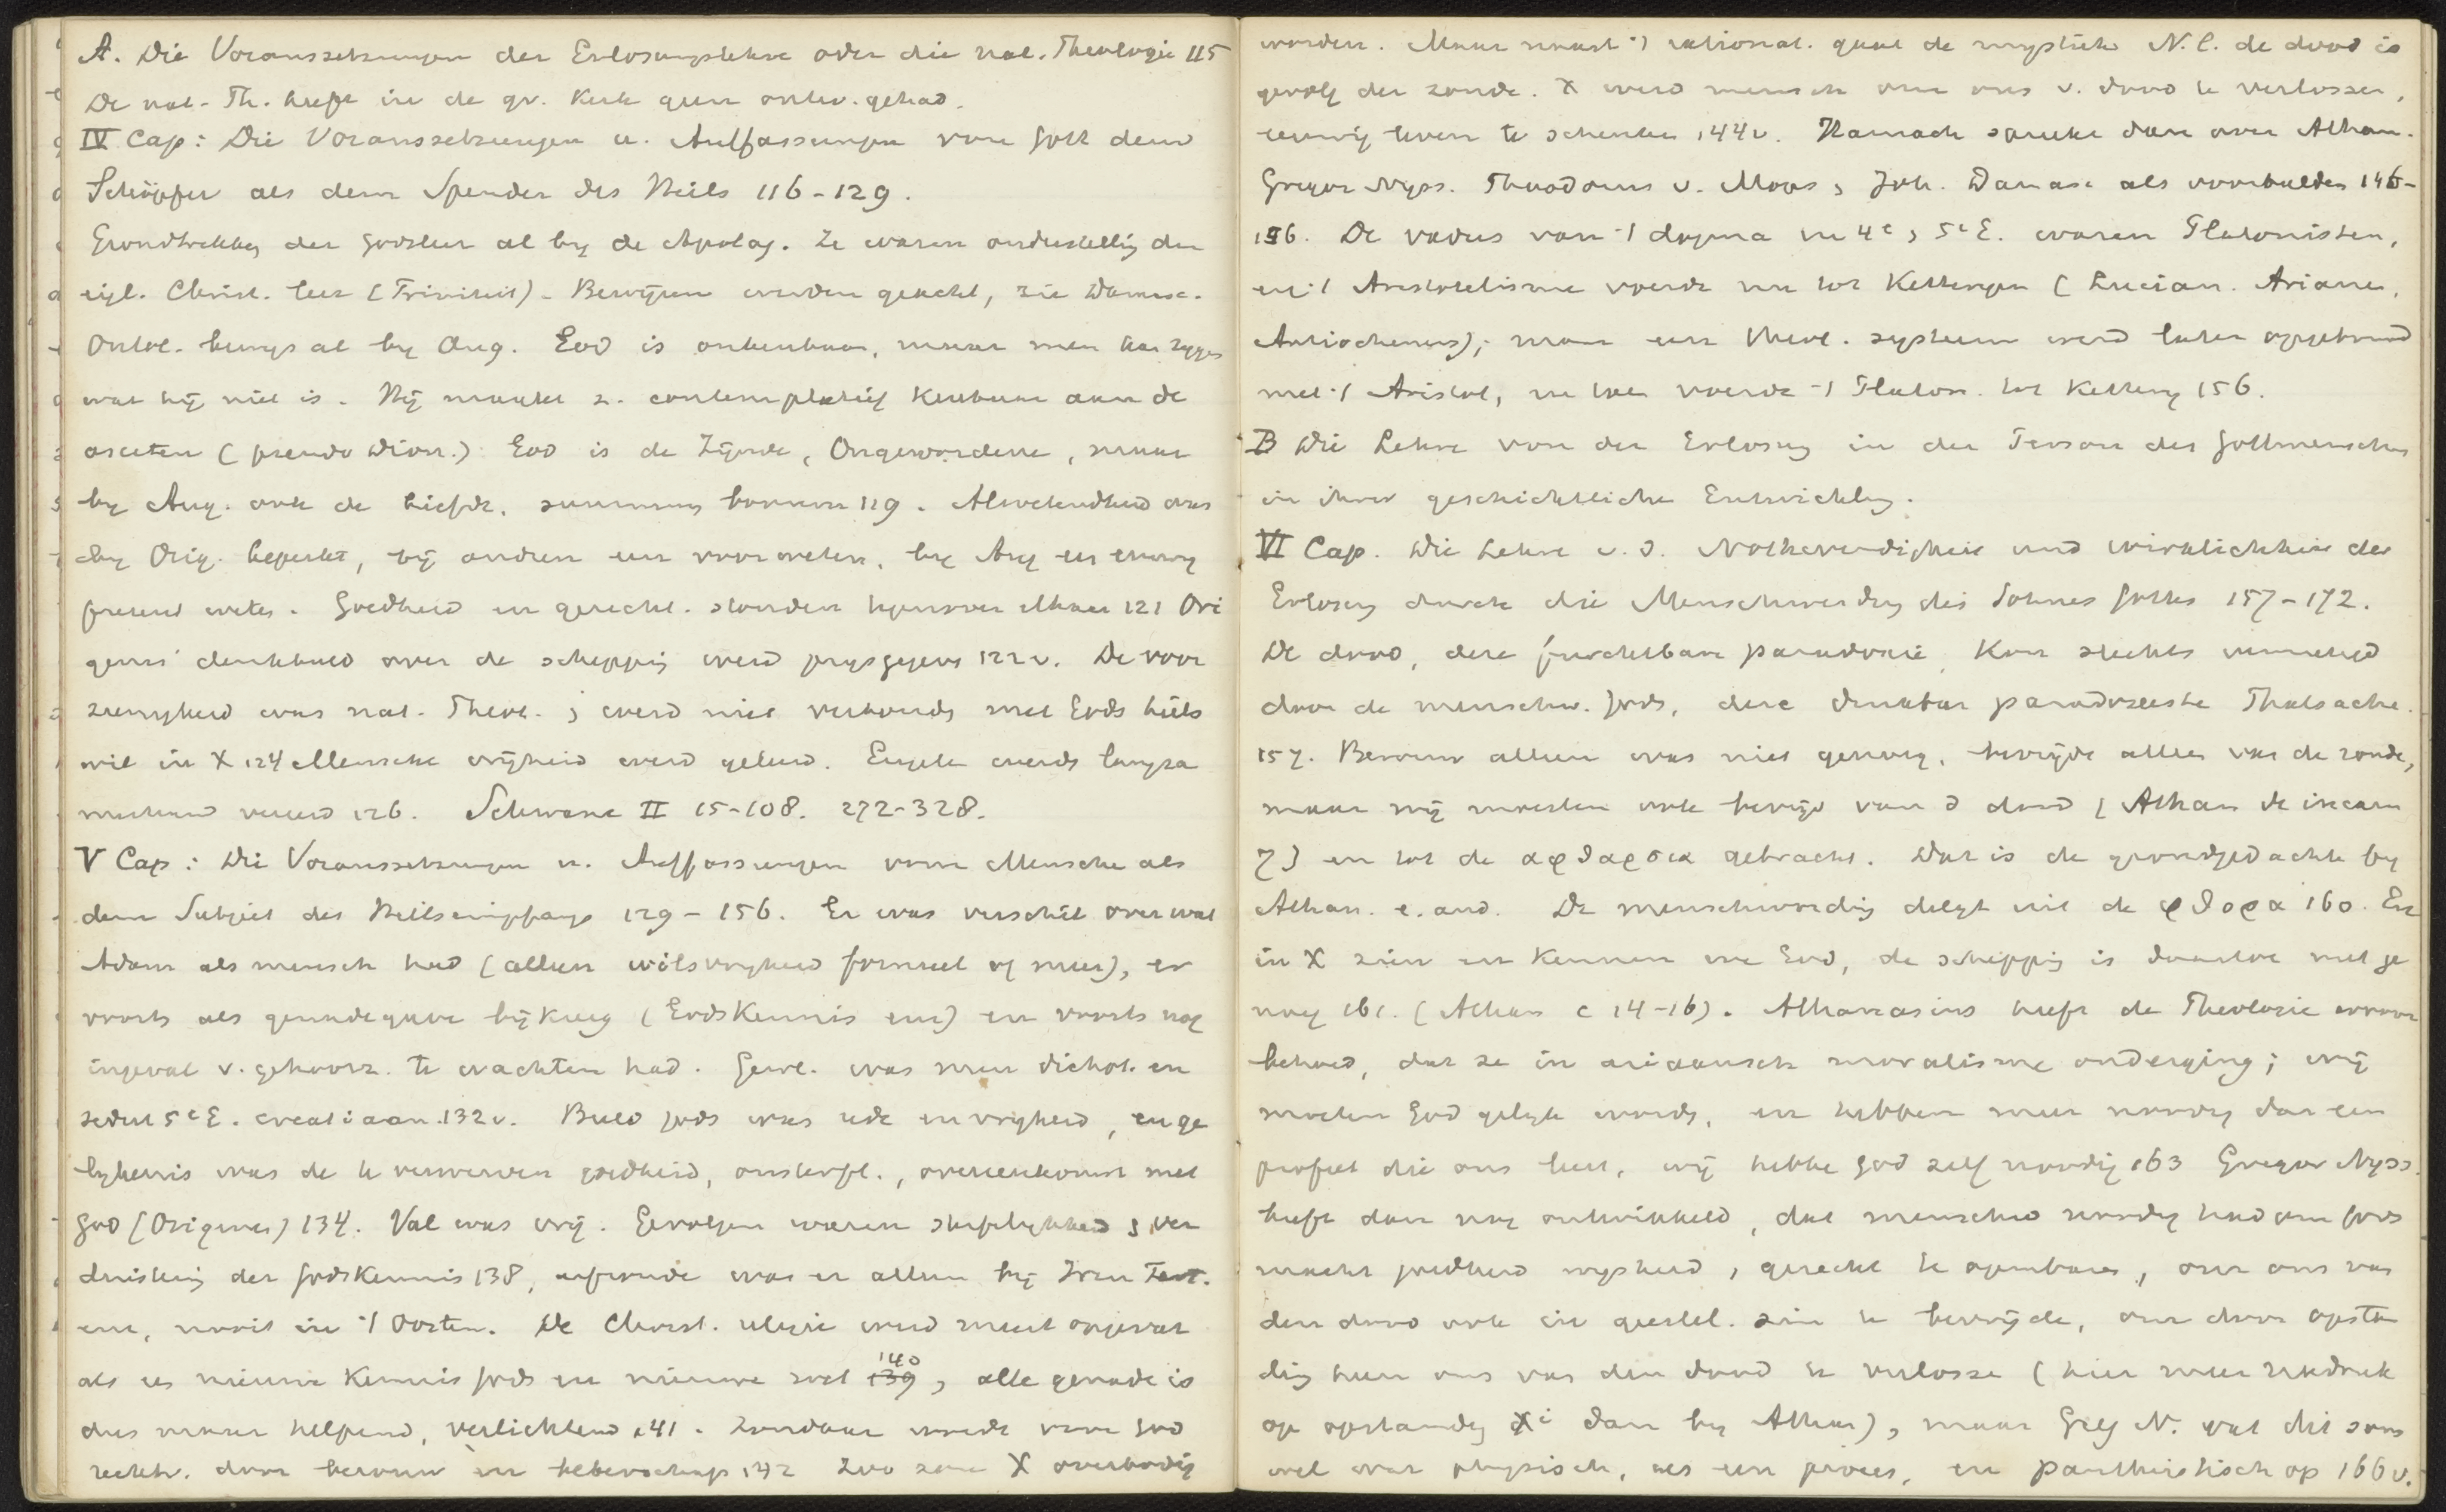 A. Die Voraussetzungen der Erlosungslehre oder die nat. Theologie 115
De nat. Th. heeft in de gr. Kerk geen ontw. gehad.
IV Cap: Die Voraussetzungen u. Auffassungen von Gott dem
Schöpfer als dem Spender des Heils 116-129.
Grondtrekken der godsleer al by de Apolog. Ze waren onderstelling der
eigl. Christ. leer (Triniteit) - Bewijzen werden geacht, zie Damasc.
Ontol. bewijs al by Aug. God is onkenbaar, maar men kan zeggen
wat hij niet is. Hij maakt z. contemplatief kenbaar aan de
asceten (pseudo Dion.) God is de Zijnde, Ongewordene, maar
by Aug. ook de liefde, summum bonum 119. Alwetendheid was
by Orig. beperkt, bij andren een vooraf weten, by Aug een eeuwig
present weten. Goedheid en gerecht. stonden tegenover elkaar 121 Ori
genes' denkbeeld over de schepping werd prysgegeven 122v. De voor
zienigheid was nat. Theol. & werd niet verbonden met Gods heils
wil in X 124 Mensche vrijheid werd geleerd. Engele werds langza
merhand vereerd 126. Schwane II 15-108. 272-328.
V Cap: Die Voraussetzungen u. Auffassungen vom Mensche als
dem Subject des Heilsempfangs 129-156. Er was verschil over wat
Adam als mensch had (alleen wilsvryheid formeel of meer), er
voorts als genadegave bij kreeg (Gods Kennis enz) en voorts nog
ingeval v. gehoorz. te wachten had. Gewl. was men dichot. en
sedert 5e E. creatiaan. 132v. Beeld gods was rede en vryheid, en ge
lykenis was de te verwerven goedheid, onsterfl., overeenkomst met
God (Origenes) 134. Val was vrij. Gevolgen waren sterflykheid & ver
duistering der gods Kennis 138, erfzonde was er alleen bij Iren Tert.
enz, nooit in 't Oosten. De Christ. religie werd meest opgevat
als een nieuwe Kennis gods en nieuwe wet 139 140, alle genade is
dus maar helpend, verlichtend 141. Zondaar wordt voor God
rechtv. door berouw en belterschap 142 Zoo zou X overbodig
worden. Maar naast 't rational. gaat de mystiek N.l. de dood is
gevolg der zonde. X werd mensch om ons v. dood te verlossen,
eeuwig leven te schenken 144v. Harnack spreekt dan over Athan.
Gregor Nyss. Theodorus v. Mops & Joh. Damasc als voorbeelden 146-
156. De vaders van 't dogma in 4e & 5e E. waren Platonisten,
en 't Aristotelisme voerde nu tot Ketteryen (Lucian. Arianen,
Antiochenen); maar een theol. systeem werd later opgebouwd
met 't Aristot, en toen voerde 't Platon. tot Kettery 156.
B Die Lehre von der Erlosung in der Person des Gottmenschen
in ihrer geschichtliche Entwicklung.
VI Cap. Die Lehre v. d. Nothwendigkeit und wirklichkeit der
Erlosung durch die Menschwerdung des Sohnes Gottes 157-172.
De dood, deze furchtbare paradoxie, kon slechts vernietigd
door de menschw. Gods, deze denkbar paradoxeste Thatsache.
157. Berouw alleen was niet genoeg, bevrijde alleen van de zonde,
maar wij moesten ook bevrijd van d dood (Athan de incarn
7) en tot de αφθαρσια gebracht. Dat is de grondgedachte by
Athan. e. and. De menschwording delgt uit de φθορα 160. En
in X zien en kennen we God, de schepping is daartoe niet ge
noeg 161. (Athan c 14-16). Athanasius heeft de Theologie ervoor
behoed, dat ze in ariaansch moralisme onderging; wij
moeten God gelyk worden, en hebben meer noodig dan een
profeet die ons leert, wij hebbe God zelf noodig 163 Gregor Nyss.
heeft dan nog ontwikkeld, dat menschw noodig had om Gods
macht goedheid wysheid, gerecht te openbaren, om ons van
den dood ook in geestel. zin te bevrijde, om door opstan
ding heen ons van den dood te verlosse (hier meer nadruk
op opstanding Xi dan by Athan), maar Greg N. vat dit soms
wel wat physisch, als een proces, en pantheistisch op 166v.